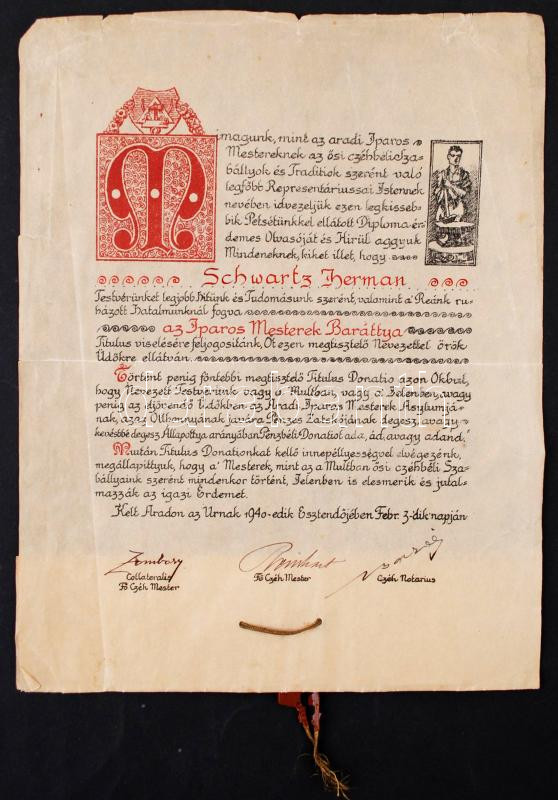 Mimagunk, mint az aradi Iparos
Mestereknek az ősi czéhbéli Sza-
bállyok és Traditiok szerént való
legfőbb Representáriussai Istennek
nevében idvezeljük ezen legkisseb-
bik Petsétünkkel ellátott Diploma ér-
demes Olvasóját és Hirül aggyuk
Mindeneknek, kiket illet, hogy
Schwartz Herman
Testvérünket legjobb Hitünk és Tudomásunk szerént, valamint a' Reánk ru-
házott Hatalmunknál fogva
az Iparos Mesterek Baráttya
Titulus viselésére feljogositánk, Őt ezen megtisztelő Nevezettel örök
Üdőkre ellátván.
Történt penig föntebbi megtisztelő Titulus Donatio azon Okbul,
hogy Nevezett Testvérünk vagy a' Multban, vagy a' Jelenben, avagy
penig az eljövendő Üdőkben az Aradi Iparos Mesterek Asylumjá-
nak, azaz Otthonyának javára Pénzes Zatskójának egész, avagy
kevésbbé degesz Állapottya arányában Pénzbéli Donatiot ada, ád, avagy adand.
Miután Titulus Donationkat kellő innepéllyességvel elvégezénk,
megállapittyuk, hogy a' Mesterek, mint az a Multban ősi czéhbéli Sza-
bállyaink szerént mindenkor történt, Jelenben is elesmerik és jutal-
mazzák az igazi Érdemet.
Kelt Aradon az Urnak 1940-edik Esztendőjében Febr. 3-dik napján
Zombory
Reinhart
Collateralis
Fő Czéh Mester
Fő Czéh Mester
Czéh Notarius